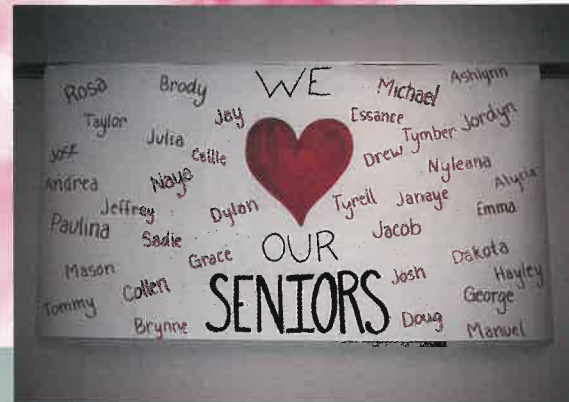 WE
OUR
SENIORS
Rosa
Brody
Jay
Taylor
Julia
Callie
Jose
Andrea
Naya
Jeffrey
Dylan
Paulina
Sadie
Grace
Mason
Collen
Tommy
Brynne
Michael
Ashlynn
Essance
Tymber
Jordyn
Drew
Nyleana
Tyrell
Janaye
Alycia
Emma
Jacob
Dakota
Josh
Hayley
George
Doug
Manuel